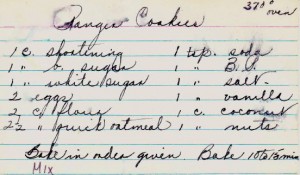 Ranger Cookies 370° oven
1 c. shortening 1 tsp. soda
1 " b. sugar 1 " B.P.
1 " white sugar 1 " salt
2 eggs 1 " vanilla
2 c flour 1 c. coconut
2½ " quick oatmeal 1 " nuts
Bake in order given. Bake 10 to 15 min
MIX